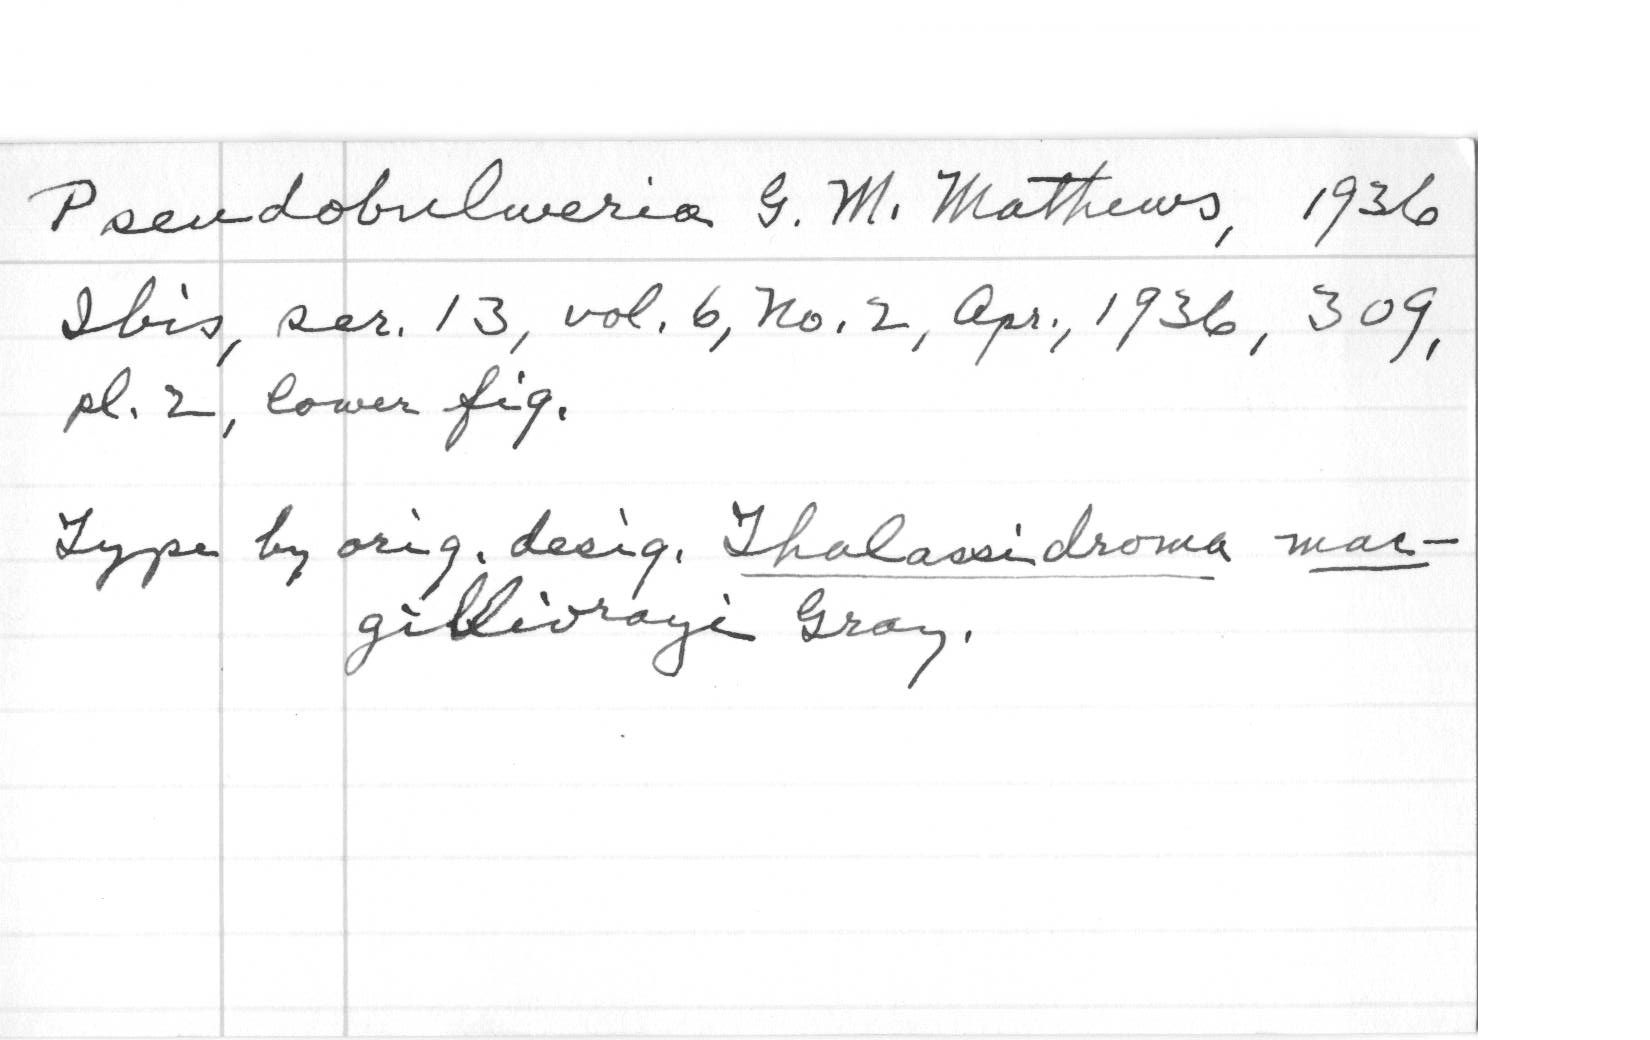 Pseudobulweria G. M. Mathews, 1936
Ibis, ser. 13, vol. 6, No. 2, Apr., 1936, 309,
pl. 2, lower fig.
Type by orig. desig. Thalassidroma mac-
gillivrayi Gray.